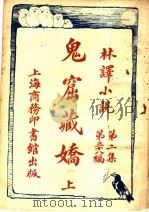 林譯小說
第二集
第六編
鬼窟藏嬌 上
上海商務印書館出版